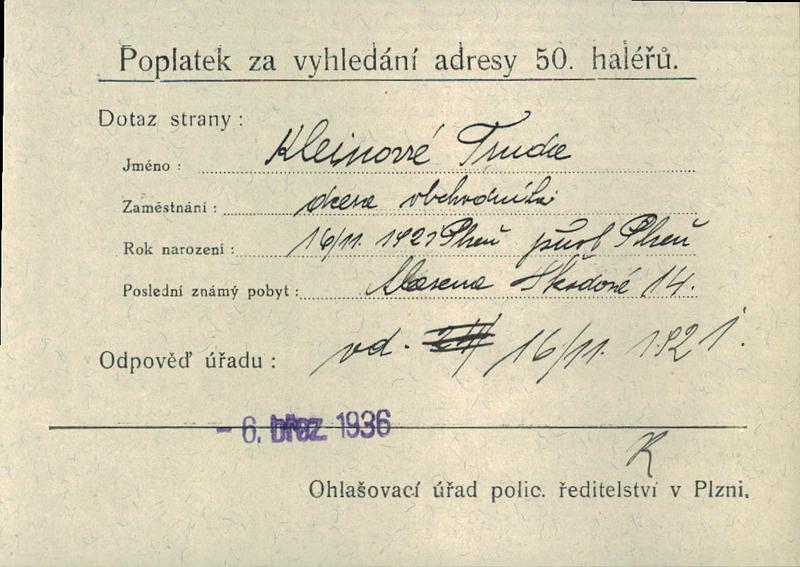 Poplatek za vyhledání adresy 50. haléřů.
Dotaz strany:
Jméno: Kleinové Truda
Zaměstnání: dcera obchodníka
Rok narození: 16/11. 1921 Plzeň přísl Plzeň
Poslední známý pobyt: Škodové 14.
Odpověď úřadu: od. 16/11. 1921.
- 6. břez. 1936
R
Ohlašovací úřad polic. ředitelství v Plzni.